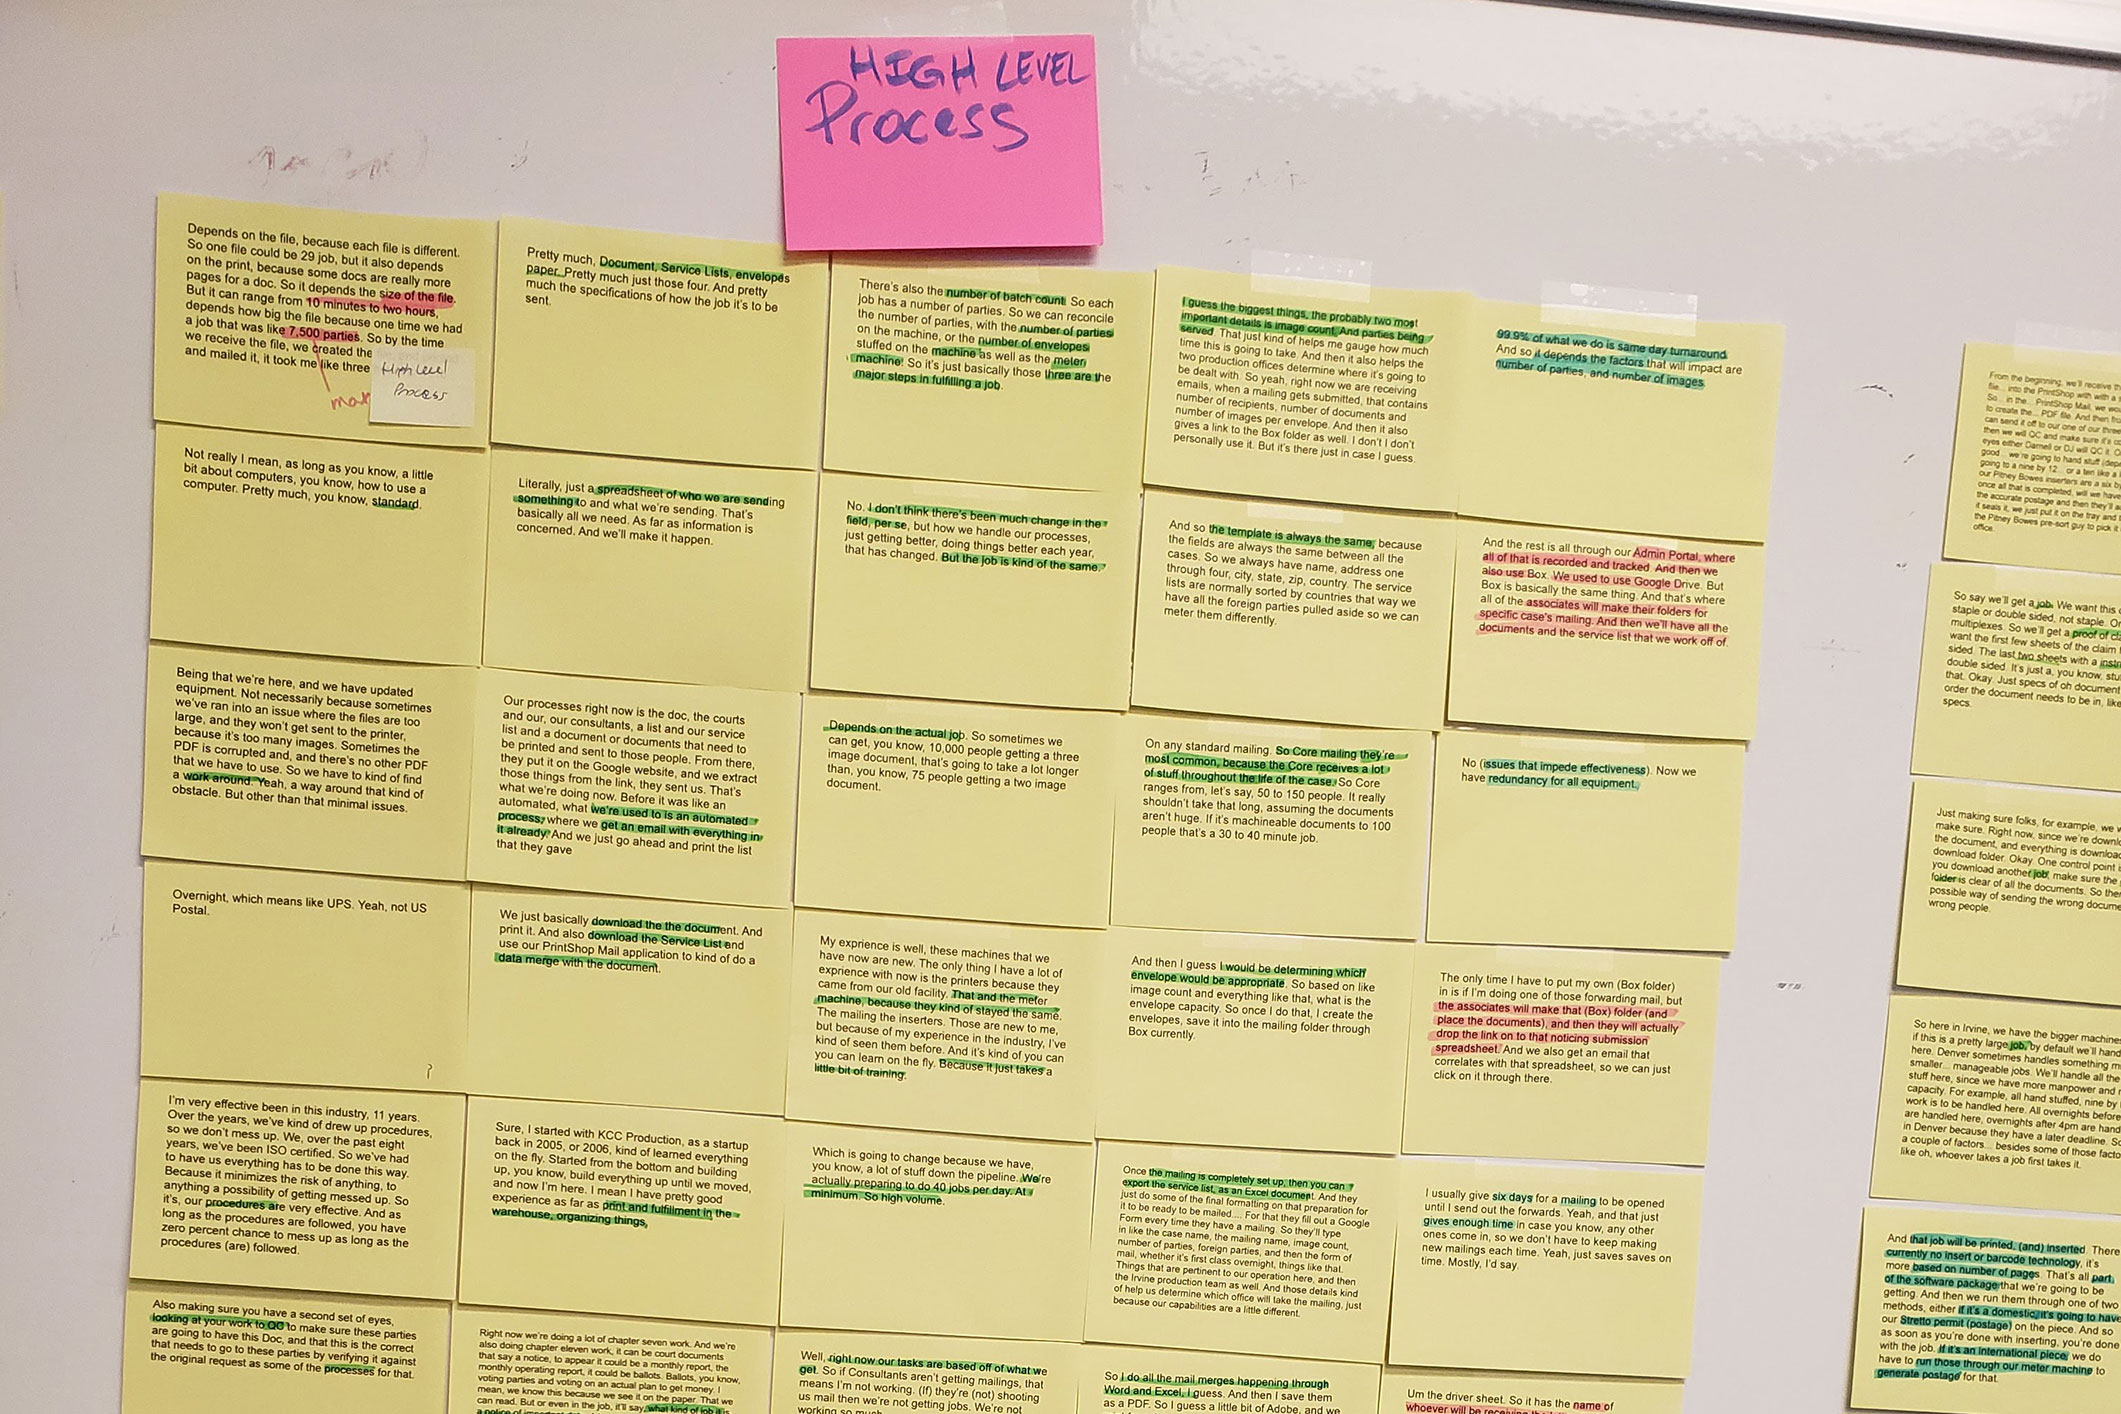 HIGH LEVEL
Process
Depends on the file, because each file is different.
So one file could be 29 job, but it also depends
on the print, because some docs are really more
pages for a doc. So it depends the size of the file.
But it can range from 10 minutes to two hours,
depends how big the file because one time we had
a job that was like 7,500 parties. So by the time
we receive the file, we created the
and mailed it, it took me like three
max
High Level
Process
Pretty much, Document, Service Lists, envelopes
paper. Pretty much just those four. And pretty
much the specifications of how the job it's to be
sent.
There's also the number of batch count. So each
job has a number of parties. So we can reconcile
the number of parties, with the number of parties
on the machine, or the number of envelopes
stuffed on the machine as well as the meter
machine. So it's just basically those three are the
major steps in fulfilling a job.
I guess the biggest things, the probably two most
important details is image count. And parties being
served. That just kind of helps me gauge how much
time this is going to take. And then it also helps the
two production offices determine where it's going to
be dealt with. So yeah, right now we are receiving
emails, when a mailing gets submitted, that contains
number of recipients, number of documents and
number of images per envelope. And then it also
gives a link to the Box folder as well. I don't I don't
personally use it. But it's there just in case I guess.
99.9% of what we do is same day turnaround.
And so it depends the factors that will impact are
number of parties, and number of images.
Not really I mean, as long as you know, a little
bit about computers, you know, how to use a
computer. Pretty much, you know, standard.
Literally, just a spreadsheet of who we are sending
something to and what we're sending. That's
basically all we need. As far as information is
concerned. And we'll make it happen.
No. I don't think there's been much change in the
field, per se, but how we handle our processes,
just getting better, doing things better each year,
that has changed. But the job is kind of the same.
And so the template is always the same, because
the fields are always the same between all the
cases. So we always have name, address one
through four, city, state, zip, country. The service
lists are normally sorted by countries that way we can
have all the foreign parties pulled aside so we can
meter them differently.
And the rest is all through our Admin Portal, where
all of that is recorded and tracked. And then we
also use Box. We used to use Google Drive. But
Box is basically the same thing. And that's where
all of the associates will make their folders for
specific case's mailing. And then we'll have all the
documents and the service list that we work off of.
Being that we're here, and we have updated
equipment. Not necessarily because sometimes
we've ran into an issue where the files are too
large, and they won't get sent to the printer,
because it's too many images. Sometimes the
PDF is corrupted and, and there's no other PDF
that we have to use. So we have to kind of find
a work around. Yeah, a way around that kind of
obstacle. But other than that minimal issues.
Our processes right now is the doc, the courts
and our, our consultants, a list and our service
list and a document or documents that need to
be printed and sent to those people. From there,
they put it on the Google website, and we extract
those things from the link, they sent us. That's
what we're doing now. Before it was like an
automated, what we're used to is an automated
process, where we get an email with everything in
it already. And we just go ahead and print the list
that they gave
Depends on the actual job. So sometimes we
can get, you know, 10,000 people getting a three
image document, that's going to take a lot longer
than, you know, 75 people getting a two image
document.
On any standard mailing. So Core mailing they're
most common, because the Core receives a lot
of stuff throughout the life of the case. So Core
ranges from, let's say, 50 to 150 people. It really
shouldn't take that long, assuming the documents
aren't huge. If it's machineable documents to 100
people that's a 30 to 40 minute job.
No (issues that impede effectiveness). Now we
have redundancy for all equipment.
Overnight, which means like UPS. Yeah, not US
Postal.
?
We just basically download the the document. And
print it. And also download the Service List and
use our PrintShop Mail application to kind of do a
data merge with the document.
My exprience is well, these machines that we
have now are new. The only thing I have a lot of
exprience with now is the printers because they
came from our old facility. That and the meter
machine, because they kind of stayed the same.
The mailing the inserters. Those are new to me,
but because of my experience in the industry, I've
kind of seen them before. And it's kind of you can
you can learn on the fly. Because it just takes a
little bit of training.
And then I guess I would be determining which
envelope would be appropriate. So based on like
image count and everything like that, what is the
envelope capacity. So once I do that, I create the
envelopes, save it into the mailing folder through
Box currently.
The only time I have to put my own (Box folder)
in is if I'm doing one of those forwarding mail, but
the associates will make that (Box) folder (and
place the documents), and then they will actually
drop the link on to that noticing submission
spreadsheet. And we also get an email that
correlates with that spreadsheet, so we can just
click on it through there.
I'm very effective been in this industry, 11 years.
Over the years, we've kind of drew up procedures,
so we don't mess up. We, over the past eight
years, we've been ISO certified. So we've had
to have us everything has to be done this way.
Because it minimizes the risk of anything, to
anything a possibility of getting messed up. So
it's, our procedures are very effective. And as
long as the procedures are followed, you have
zero percent chance to mess up as long as the
procedures (are) followed.
Sure, I started with KCC Production, as a startup
back in 2005, or 2006, kind of learned everything
on the fly. Started from the bottom and building
up, you know, build everything up until we moved,
and now I'm here. I mean I have pretty good
experience as far as print and fulfillment in the
warehouse, organizing things,
Which is going to change because we have,
you know, a lot of stuff down the pipeline. We're
actually preparing to do 40 jobs per day. At
minimum. So high volume.
Once the mailing is completely set up, then you can
export the service list, as an Excel document. And they
just do some of the final formatting on that preparation for
it to be ready to be mailed.... For that they fill out a Google
Form every time they have a mailing. So they'll type
in like the case name, the mailing name, image count,
number of parties, foreign parties, and then the form of
mail, whether it's first class overnight, things like that.
Things that are pertinent to our operation here, and then
the Irvine production team as well. And those details kind
of help us determine which office will take the mailing, just
because our capabilities are a little different.
I usually give six days for a mailing to be opened
until I send out the forwards. Yeah, and that just
gives enough time in case you know, any other
ones come in, so we don't have to keep making
new mailings each time. Yeah, just saves saves on
time. Mostly, I'd say.
Also making sure you have a second set of eyes,
looking at your work to QC to make sure these parties
are going to have this Doc, and that this is the correct
that needs to go to these parties by verifying it against
the original request as some of the processes for that.
Right now we're doing a lot of chapter seven work. And we're
also doing chapter eleven work, it can be court documents
that say a notice, to appear it could be a monthly report, the
monthly operating report, it could be ballots. Ballots, you know,
voting parties and voting on an actual plan to get money. I
mean, we know this because we see it on the paper. That we
can read. But or even in the job, it'll say, what kind of job it is
Well, right now our tasks are based off of what we
get. So if Consultants aren't getting mailings, that
means I'm not working. (If) they're (not) shooting
us mail then we're not getting jobs. We're not
working so much
So I do all the mail merges happening through
Word and Excel, I guess. And then I save them
as a PDF. So I guess a little bit of Adobe, and we
Um the driver sheet. So it has the name of
whoever will be receiving
From the beginning, we'll receive th
file... into the PrintShop with with a s
So... in the... PrintShop Mail, we wou
to create the... PDF file. And then fro
can send it off to our one of our three
then we will QC and make sure it's co
eyes either Darnell or DJ will QC it. O
good ... we're going to hand stuff (dep
going to a nine by 12... or a ten like a
our Pitney Bowes inserters are a six by
once all that is completed, will we have
the accurate postage and then they'll a
it seals it, we just put it on the tray and
the Pitney Bowes pre-sort guy to pick it
office.
So say we'll get a job. We want this
staple or double sided, not staple. Or
multiplexes. So we'll get a proof of cl
want the first few sheets of the claim
sided. The last two sheets with a instr
double sided. It's just a, you know, stu
that. Okay. Just specs of oh document
order the document needs to be in, like
specs.
Just making sure folks, for example, we
make sure. Right now, since we're downlo
the document, and everything is download
download folder. Okay. One control point i
you download another job, make sure the
folder is clear of all the documents. So ther
possible way of sending the wrong docume
wrong people.
So here in Irvine, we have the bigger machines
if this is a pretty large job, by default we'll hand
here. Denver sometimes handles something m
smaller... manageable jobs. We'll handle all the
stuff here, since we have more manpower and
capacity. For example, all hand stuffed, nine by
work is to be handled here. All overnights before
are handled here, overnights after 4pm are hand
in Denver because they have a later deadline. So
a couple of factors... besides some of those facto
like oh, whoever takes a job first takes it.
And that job will be printed, (and) inserted. There
currently no insert or barcode technology, it's
more based on number of pages. That's all part
of the software package that we're going to be
getting. And then we run them through one of two
methods, either if it's a domestic, it's going to have
our Stretto permit (postage) on the piece. And so
as soon as you're done with inserting, you're done
with the job. If it's an international piece, we do
have to run those through our meter machine to
generate postage for that.